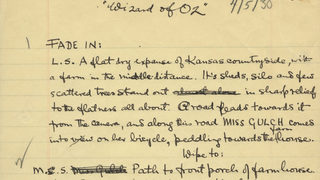 "Wizard of Oz"
4/5/38
1
FADE IN:
L.S. A flat dry expanse of Kansas countryside, with
a farm in the middle distance. It's sheds, silo and few
scattered trees stand out in sharp relief
to the flatness all about. A road leads towards it
from the camera, and along this road MISS GULCH comes
into view on her bicycle, peddling towards the farm house.
Wipe to:
M.C.S. Miss Gulch Path to front porch of farmhouse.